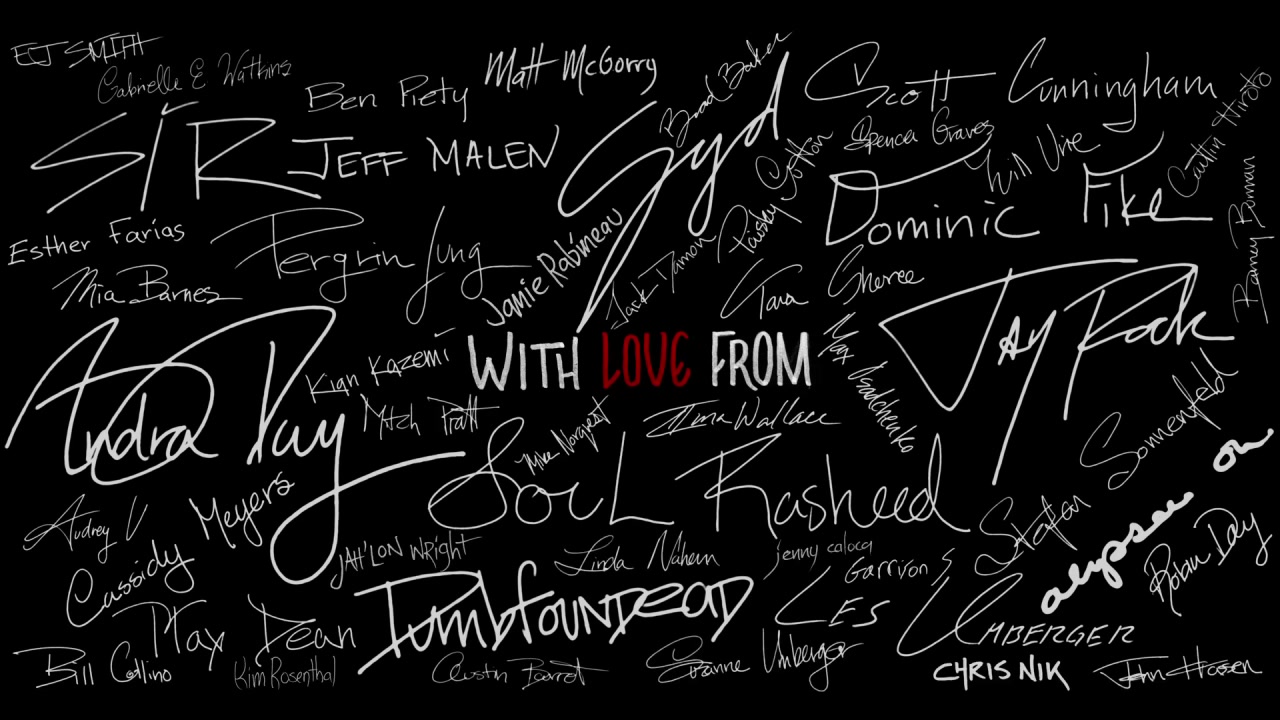 EJ SMITH
Gabrielle E Watkins
Matt McGorry
Ben Piety
Brad Baker
Scott Cunningham
SIR
JEFF MALEN
Gyd
Spencer Graves
Will Ure
Caitlin Hiroto
Dominic Fike
Paisley Cotton
Esther Farias
Pergrin Jung
Jamie Rabineau
Jack Damon
Mia Barnes
Tara Sheree
Barney Burman
Jay Rock
WITH LOVE FROM
Kian Kazemi
Max Osadchenko
Andra Day
Mitch Pratt
Mike Norquest
Tima Wallace
Sonnenfeld
SOUL Rasheed
Audrey V
Cassidy Meyers
JAH'LON WRIGHT
Linda Nahem
jenny caloca
Garrison S
Staton
alypsee on
Robin Day
Max Dean
DumbfounDEAD
LES UMBERGER
Bill Collino
Kim Rosenthal
Suzanne Umberger
CHRIS NIK